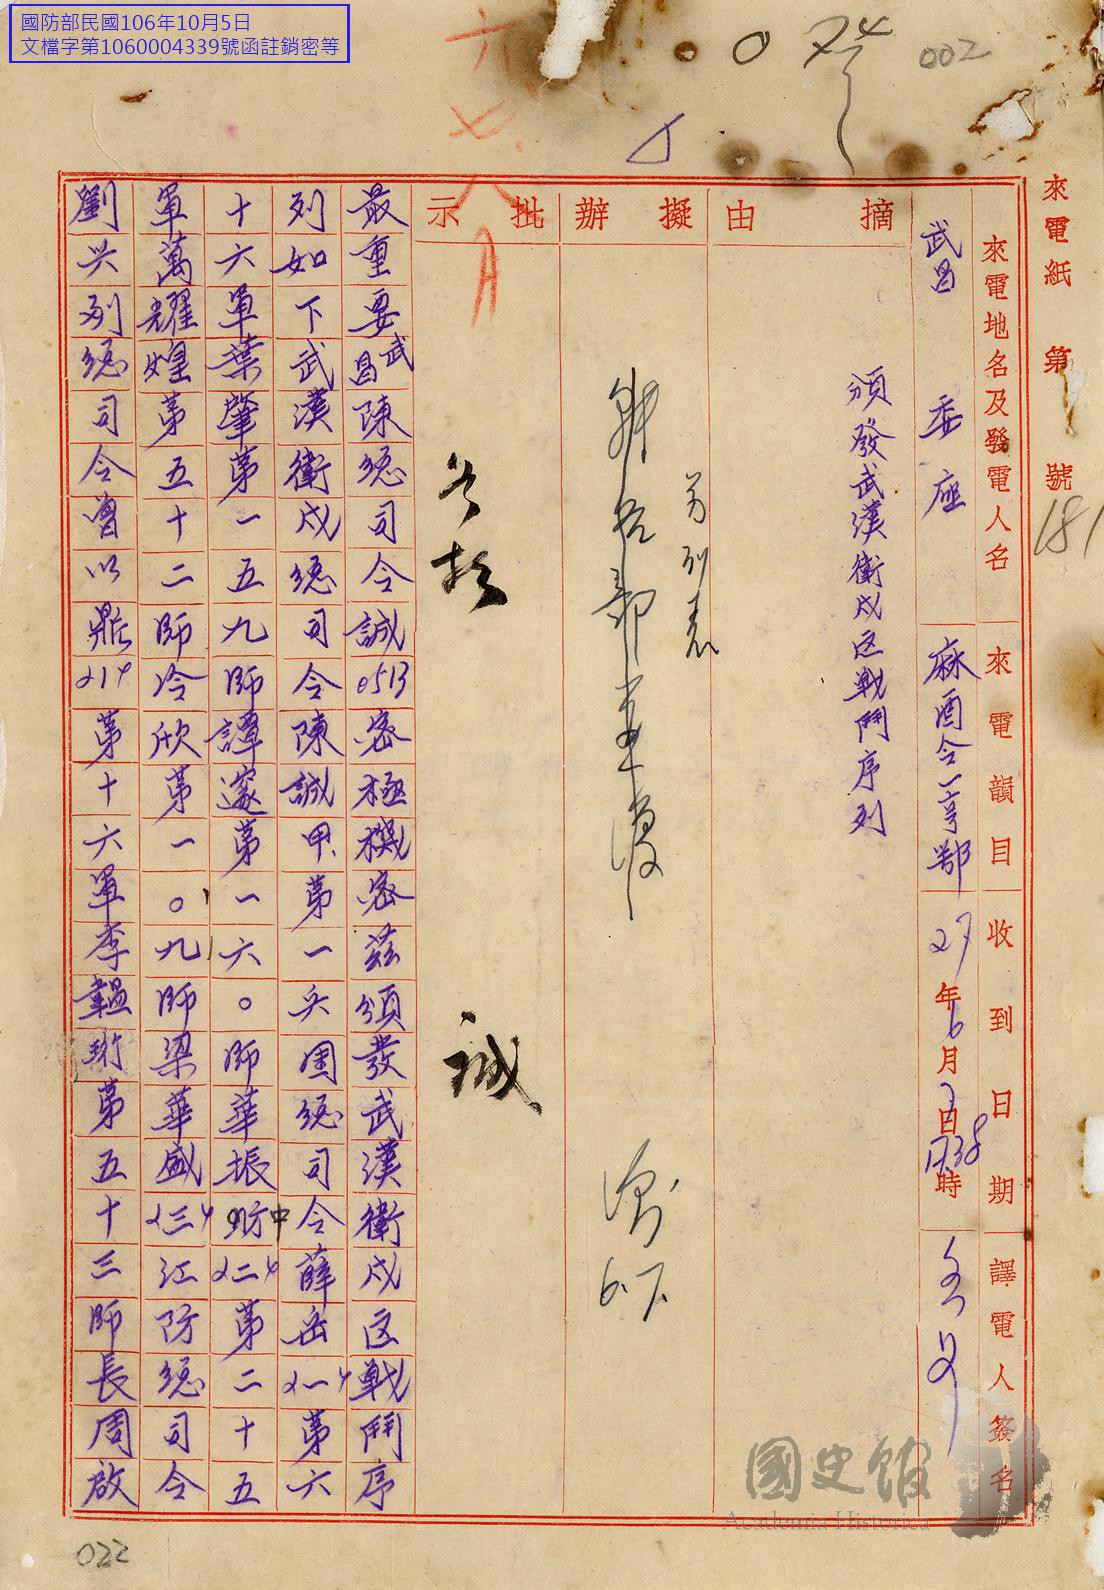 國防部民國106年10月5日
文檔字第1060004339號函註銷密等
002
六、七、八
來電紙 第 號
181
來電地名及發電人名
武昌 委座
來電韻目
麻酉令一亨鄂
收到日期
27年6月7日1738時
譯電人簽名
摘由
頒發武漢衛戍区戰鬥序列
擬辦
另列表
6.7.
批示
誠
最重要武昌陳總司令誠0513密極機密茲頒發武漢衛戍区戰鬥序
列如下武漢衛戍總司令陳誠甲、第一兵團總司令薛岳〈一〉第六
十六軍葉肇第一五九師譚邃第一六〇師華振中〈二〉第二十五
軍萬耀煌第五十二師冷欣第一〇九師梁華盛〈三〉江防總司令
劉兴列總司令曾以鼎〈1〉第十六軍李韞珩第五十三師長周啟
022
國史館
Academia Historica